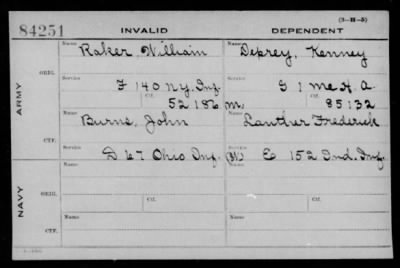 (3-H-5)
84251 INVALID DEPENDENT
Name Name
Raker William Deprey, Kenney
ORIG.
Service Service
F 140 N.Y. Inf. G 1 Me H.A.
Ctf. Ctf.
52186 m. 85132
ARMY
Name Name
Burns, John Lanther Frederick
Service Service
CTF.
D 67 Ohio Inf. E 152 Ind. Inf.
Name Name
ORIG.
Service Ctf. Service Ctf.
NAVY
Name Name
CTF.
Service Service